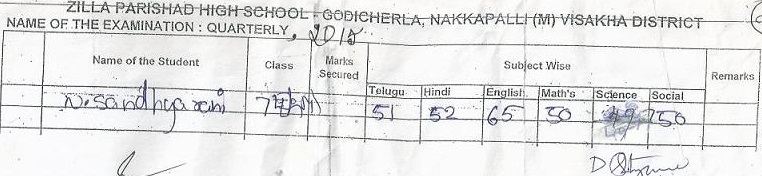 ZILLA PARISHAD HIGH SCHOOL - GODICHERLA, NAKKAPALLI (M) VISAKHA DISTRICT
NAME OF THE EXAMINATION : QUARTERLY, 2015
Name of the Student Class Marks Secured Subject Wise Remarks
Telugu Hindi English Math's Science Social
N. Sandhya rani 7 51 52 65 50 50